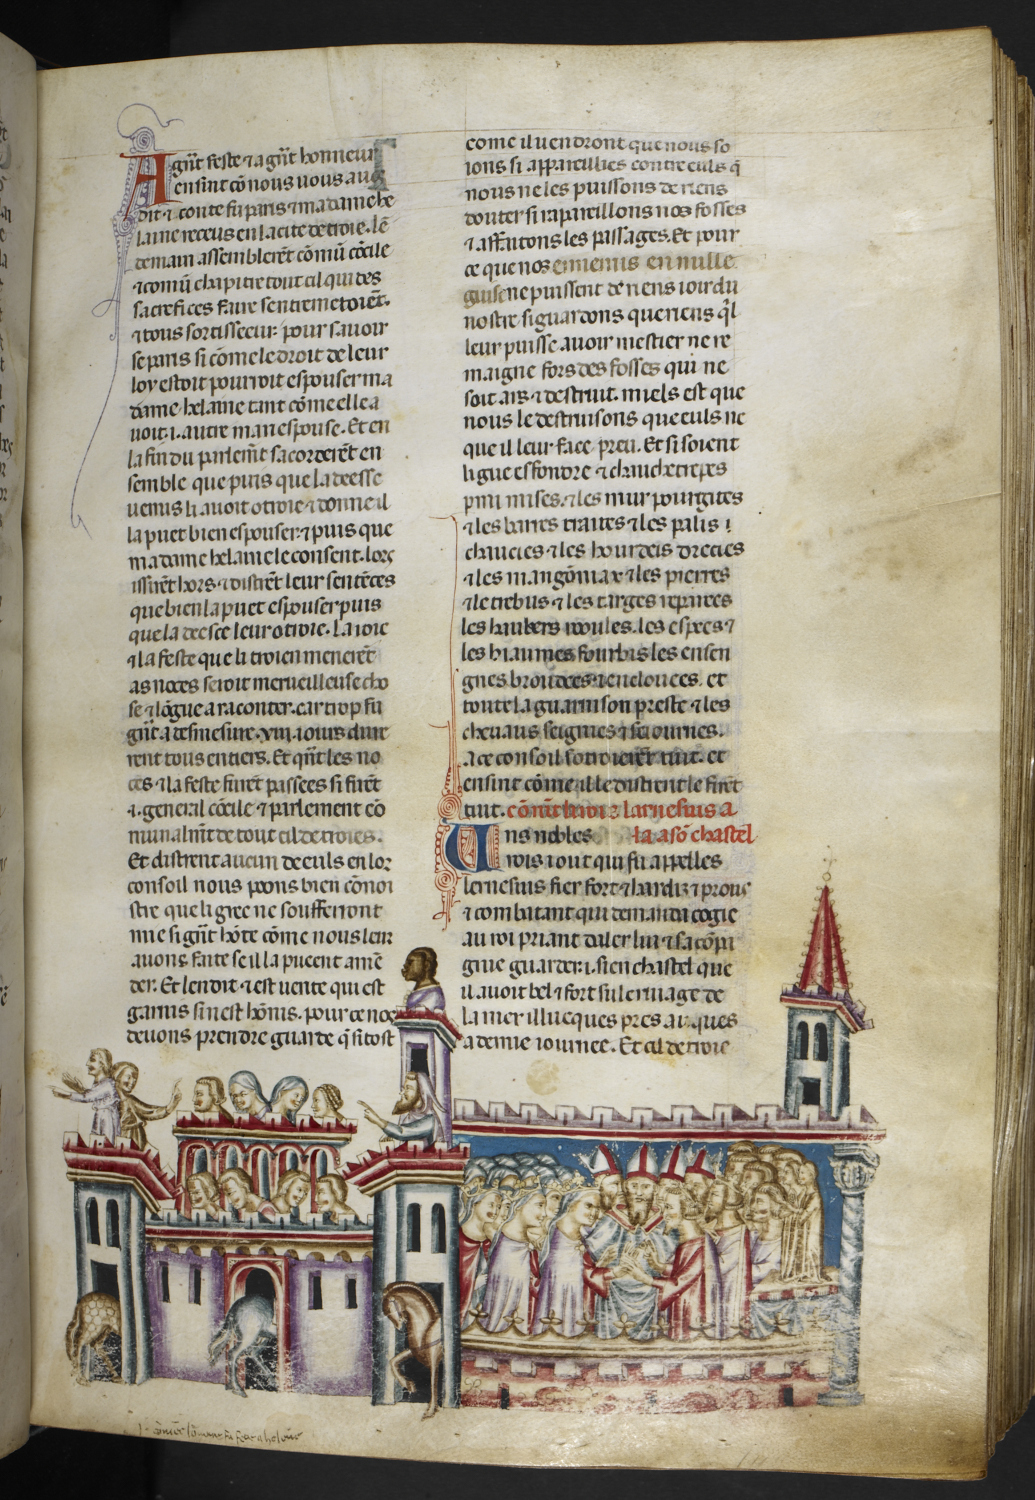 A gñt feste ⁊ a gñt honneur
ensint cõ nous uous auõs
dit ⁊ conte fu paris ⁊ ma dame he
laine receus en la cite de troie. lẽ
demain assemblerẽt cõmũ cõcile
⁊ comũ chapitre tout cil qui des
sacrefices faire sentremetoiẽt.
⁊ tous sortisseeur. pour sauoir
se paris si cõme le droit de leur
loy estoit pourroit espouser ma
dame helaine tant cõme elle a
uoit .i. autre man espouse. Et en
la fin du parlemẽt sacorderẽt en
semble que puis que la deesse
uenus li auoit otroie ⁊ donne il
la puet bien espouser ⁊ puis que
ma dame helaine le consent. lors
issirẽt hors ⁊ distrẽt leur sentẽces
que bien la puet espouser puis
que la deesse leur otroie. La ioie
⁊ la feste que li troien menerẽt
as noces seroit merueilleuse cho
se ⁊ lõgue a raconter. car trop fu
gñt a desmesure .viii. iours dure
rent tous entiers. Et qñt les no
ces ⁊ la feste furẽt passees si firẽt
.i. general cõcile ⁊ parlement cõ
munalmt de tout cil de troies.
Et distrent aucun de culs en lor
consoil nous poons bien cõnoi
stre que li grec ne soufferront
mie si gñt hõte cõme nous leur
auons faite se il la pueent amẽ
der. Et len dit ⁊ est uente qui est
garnis si nest hõnis. pour ce nos
deuons prendre guarde q̃ si tost
come il uendront que nous so
ions si appareillies contre culs q̃
nous ne les puissons de riens
douter si rapareillons nos fosses
⁊ affeutons les passages. Et pour
ce que nos ennemis en nulle
guise ne puissent de riens iour du
nostre si guardons que riens q̃l
leur puisse auoir mestier ne re
maigne fors des fosses qui ne
soit ars ⁊ destruit. miels est que
nous le destruisons que culs ne
que il leur face preu. Et si soient
li gue esfondre ⁊ chauchetrepes
pmi mises. ⁊ les mur pourgites
⁊ les barres traites ⁊ les palis i
chaucies ⁊ les hourdeis drecies
⁊ les mangõniax ⁊ les pierres
⁊ le trebus ⁊ les targes reparees
les haubers roules. les espees ⁊
les hiaumes fourbis les ensen
gnes broudees ⁊ encloueés. et
toute la guarnison preste ⁊ les
cheuaus seignies ⁊ seiournes.
A ce consoil sotroierẽt tuit. et
ensint cõme il le distrent le firẽt
tuit. cõmt li roi larnesuis a
la a sõ chastel
Uns nobles
rois iout qui fu appelles
lernesuis fier fort ⁊ hardiz ⁊ prous
⁊ combatant qui demanda cogie
au roi priant daler lui ⁊ sa cõpa
gnie guarder .i. sien chastel que
il auoit bel ⁊ fort sus le riuage de
la mer illuecques pres a .i. ques
a demie iournee. Et cil de troie